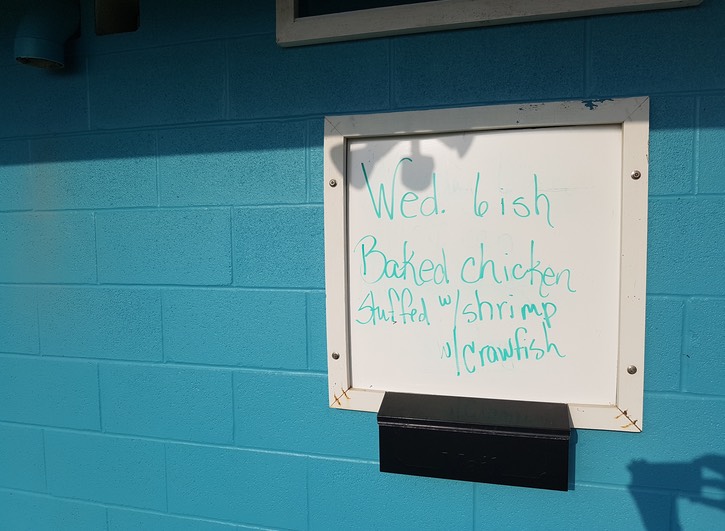 Wed. 6ish
Baked chicken
Stuffed w/shrimp
w/crawfish